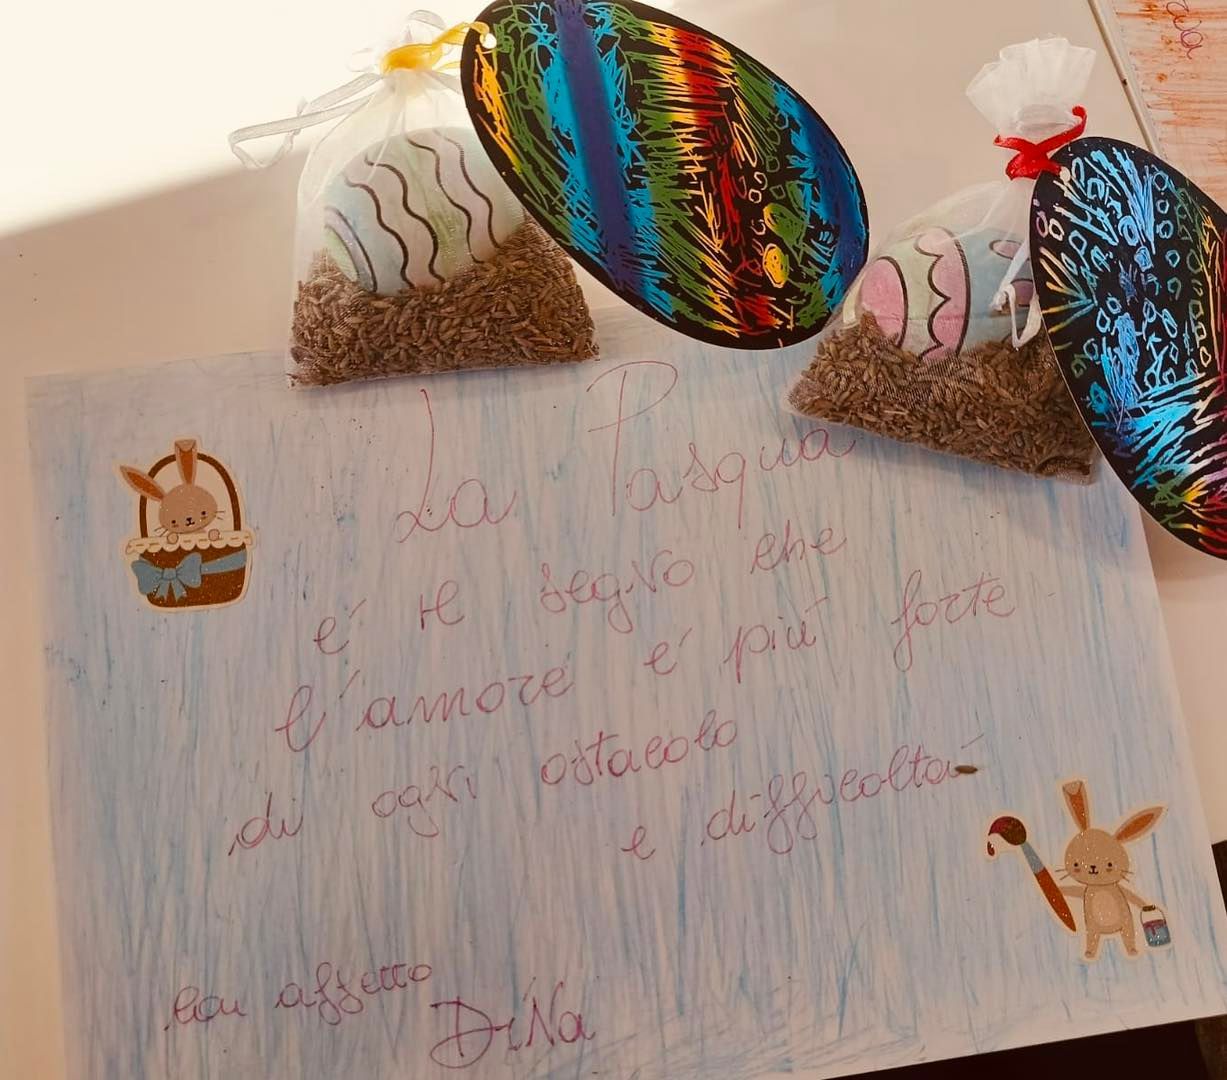 La Pasqua
é il segno che
l'amore é più forte
di ogni ostacolo
e difficoltá
con affetto
DiNa